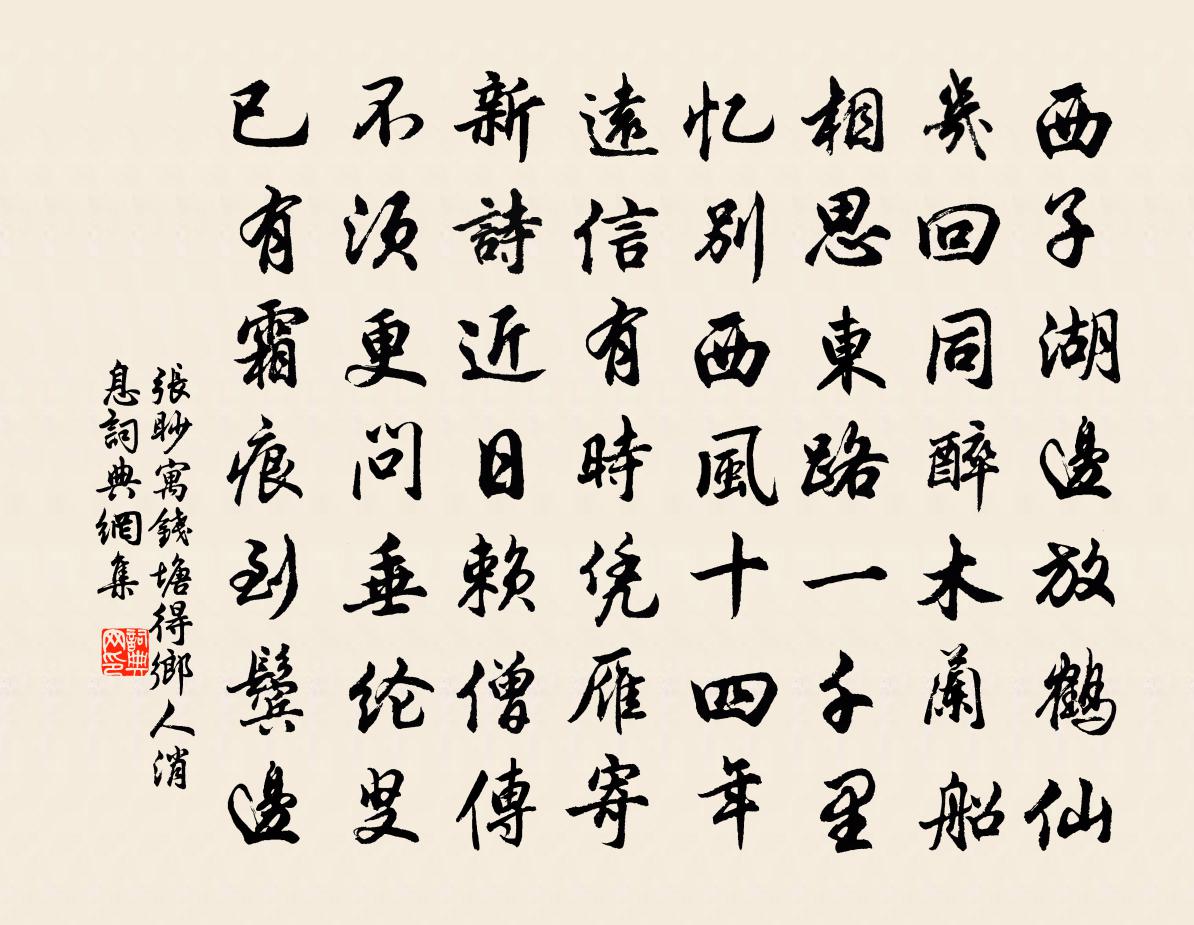 西子湖邊放鶴仙
幾回同醉木蘭船
相思東路一千里
忆別西風十四年
遠信有時凭雁寄
新詩近日賴僧傳
不須更問垂纶叟
已有霜痕到鬓邊
張眇寓錢塘得鄉人消
息詞典網集
詞典网印